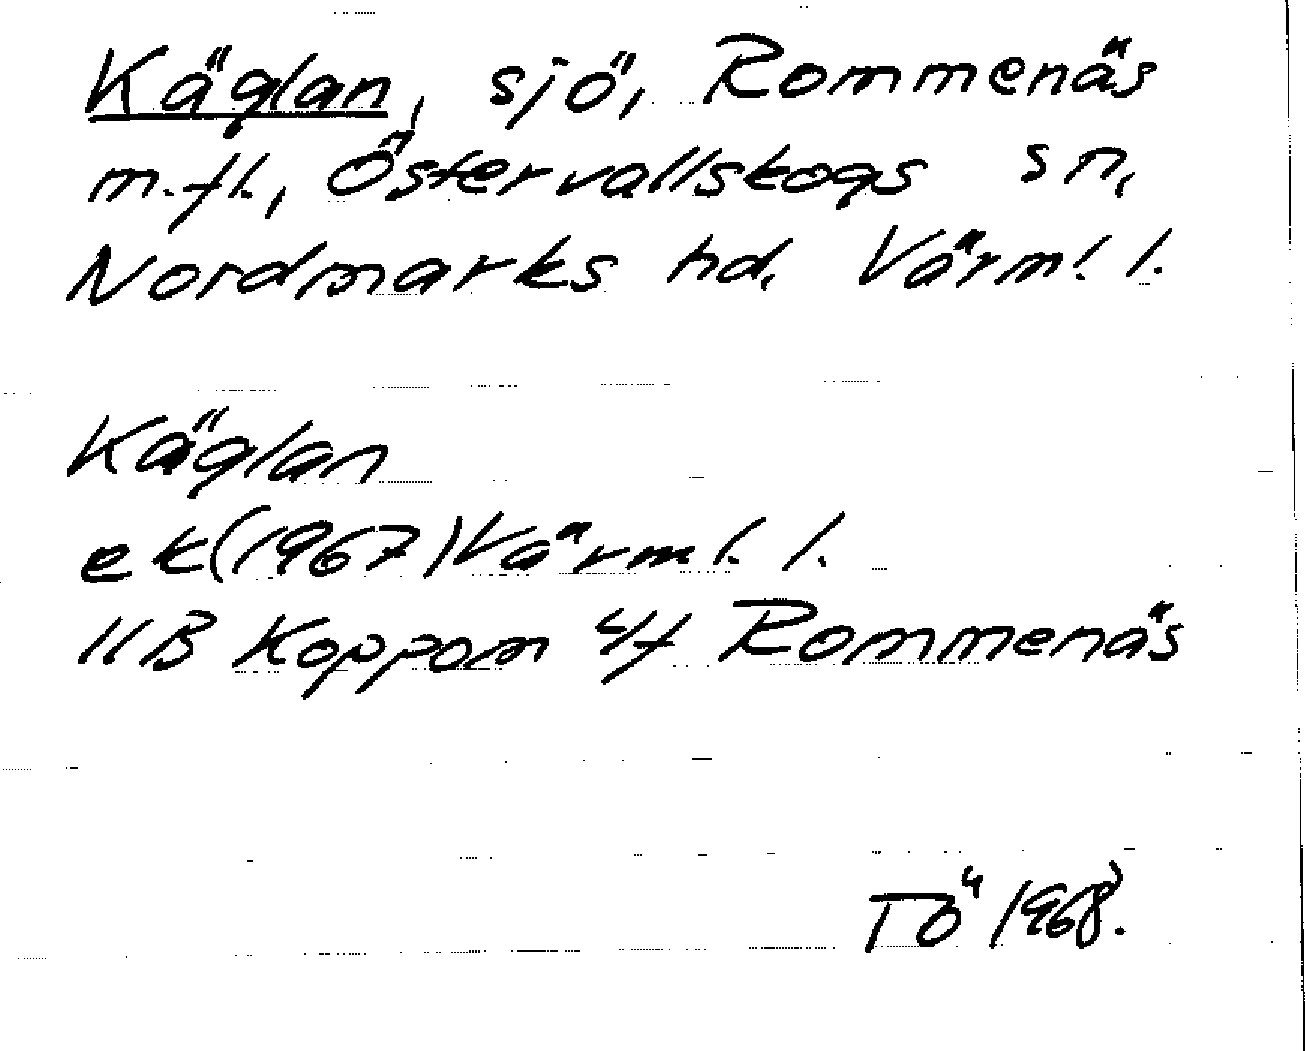 Käglan, sjö, Rommenäs
m.fl., Östervallskogs sn,
Nordmarks hd. Värml. l.
Käglan
ek(1967) Värml. l.
11B Koppom 4f Rommenäs
TÖ 1968.